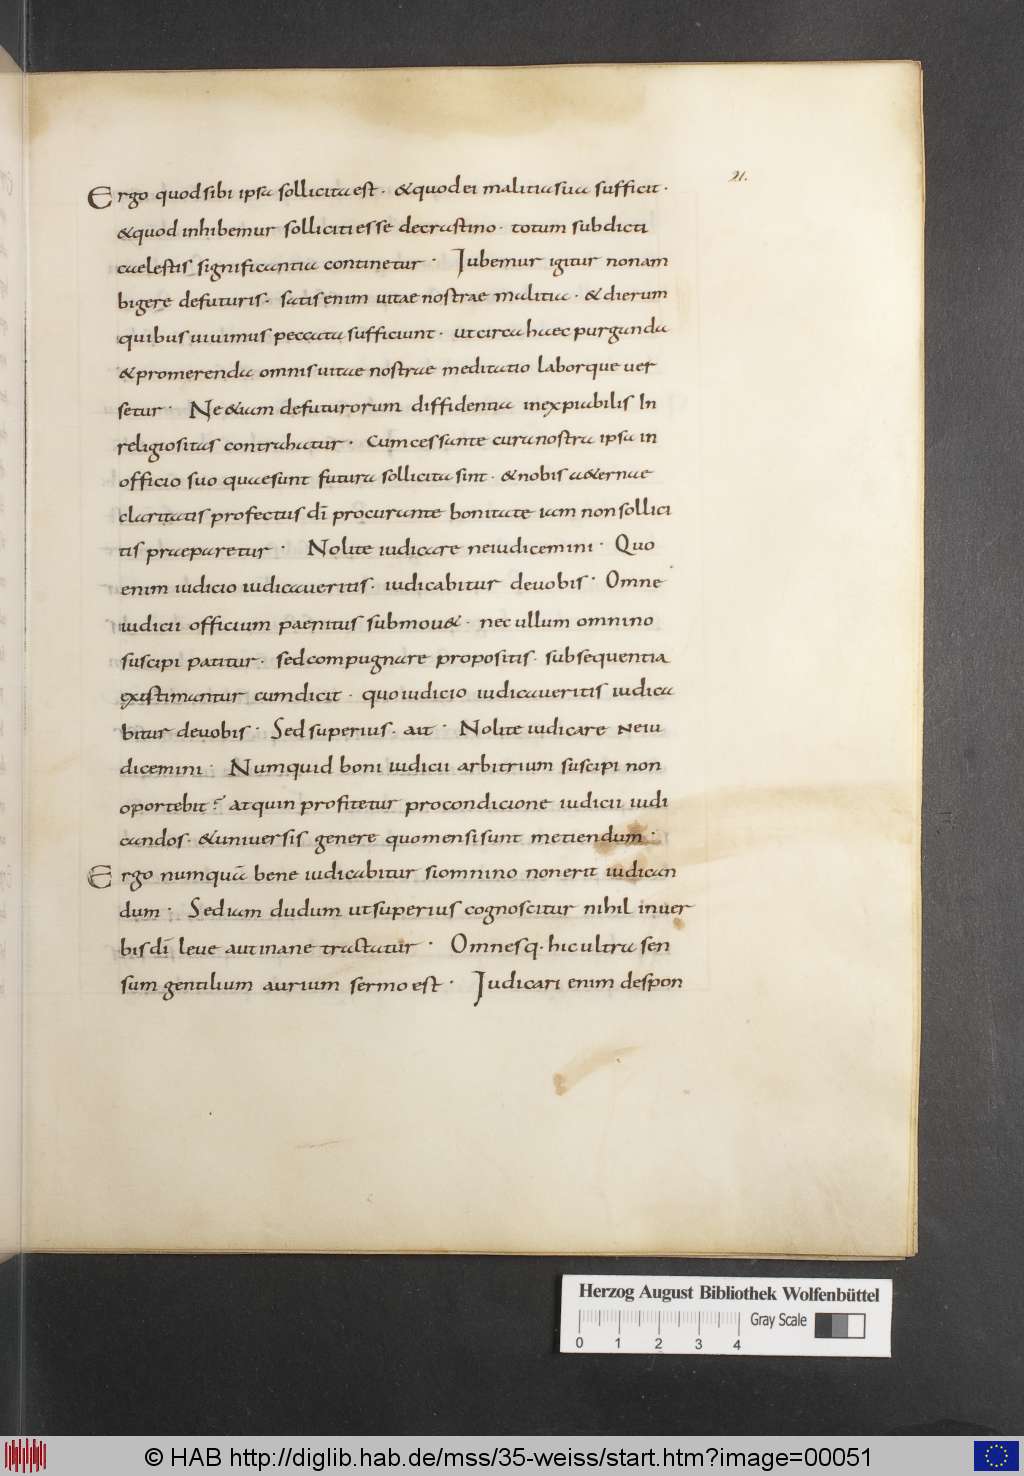 21.
Ergo quod sibi ipsa sollicita est · & quod ei malitia sua sufficit ·
& quod inhibemur solliciti esse de crastino · totum sub dicti
caelestis significantia continetur · Iubemur igitur non am
bigere de futuris · satis enim vitae nostrae malitia · & dierum
quibus uiuimus peccata sufficiunt · ut circa haec purganda
& promerenda omnis uitae nostrae meditatio laborque uer
setur · Ne &iam de futurorum diffidentia inexpiabilis In
religiositas contrahatur · Cum cessante cura nostra ipsa in
officio suo quae sunt futura sollicita sint · & nobis a&ernae
claritatis profectus dī procurante bonitate iam non sollici
tis praeparetur · Nolite iudicare ne iudicemini · Quo
enim iudicio iudicaueritis · iudicabitur de uobis · Omne
iudicii officium paenitus submou& · nec ullum omnino
suscipi patitur · sed compugnare propositis · subsequentia
existimantur cum dicit · quo iudicio iudicaueritis iudica
bitur de uobis · Sed superius · ait · Nolite iudicare ne iu
dicemini · Numquid boni iudicii arbitrium suscipi non
oportebit ? at quin profitetur pro condicione iudicii iudi
candos · & uniuersis genere quo mensi sunt metiendum ·
Ergo numquā bene iudicabitur si omnino non erit iudican
dum · Sed iam dudum ut superius cognoscitur nihil in uer
bis dī leue aut inane tractatur · Omnesq · hic ultra sen
sum gentilium aurium sermo est · Iudicari enim de spon
Herzog August Bibliothek Wolfenbüttel
Gray Scale
0 1 2 3 4
© HAB http://diglib.hab.de/mss/35-weiss/start.htm?image=00051